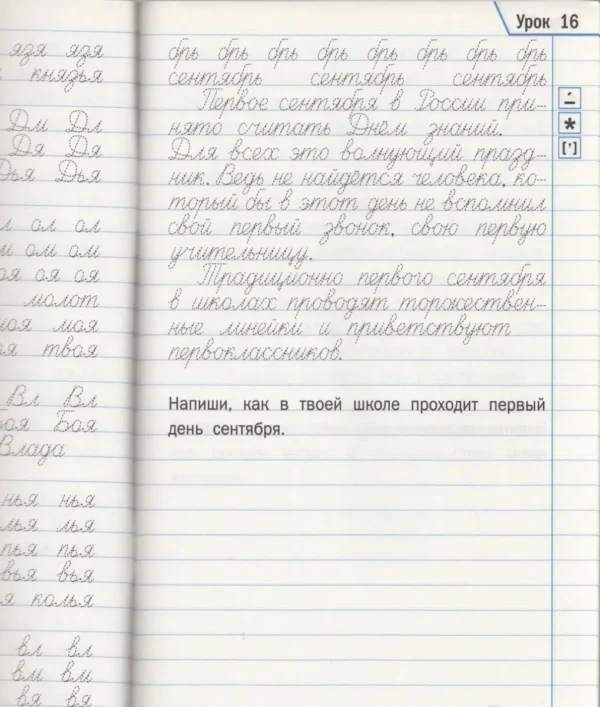 язя язя
князья
Дм Дл
Дя Дя
Дья Дья
л ол ол
м ом ом
оя оя оя
молот
моя моя
я твоя
Вл Вл
Боя
Влада
нья нья
лья лья
пья пья
вья вья
я колья
вл вл
вм вм
вя вя
Урок 16
брь брь брь брь брь брь брь брь
сентябрь сентябрь сентябрь
Первое сентября в России при-
нято считать Днём знаний.
Для всех это волнующий празд-
ник. Ведь не найдётся человека, ко-
торый бы в этот день не вспомнил
свой первый звонок, свою первую
учительницу.
Традиционно первого сентября
в школах проводят торжествен-
ные линейки и приветствуют
первоклассников.
*
[']
Напиши, как в твоей школе проходит первый
день сентября.